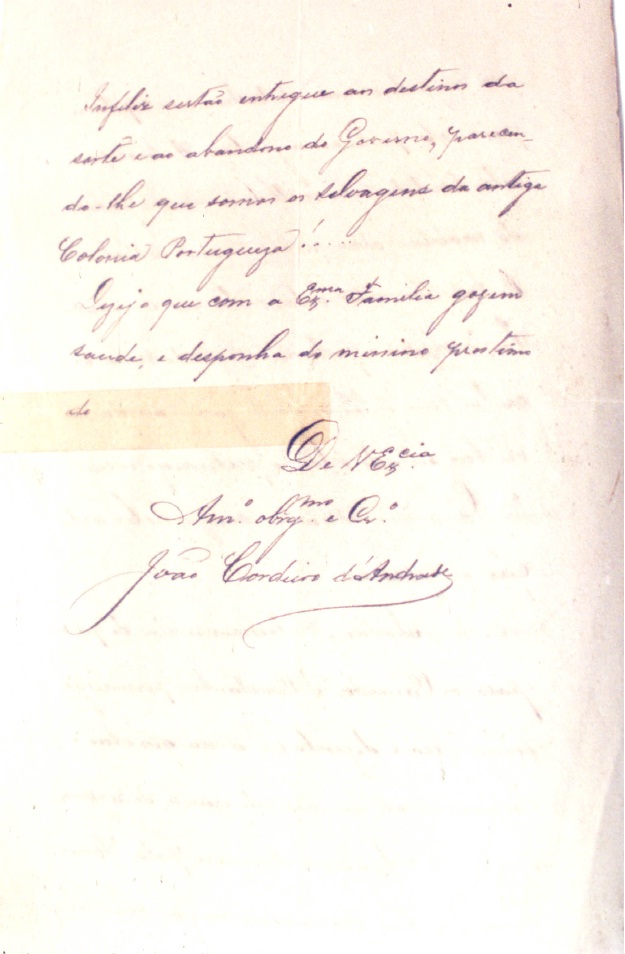 Infeliz sertão entregue aos destinos da
sorte e ao abandono do Governo, parecen-
do-lhe que somos os selvagens da antiga
Colonia Portugueza!....
Dezejo que com a Exma. Familia gozem
saude, e desponha do minimo prestimo
de
De VExcia.
Amo. obrigmo. e Cro.
João Cordeiro d'Andrade